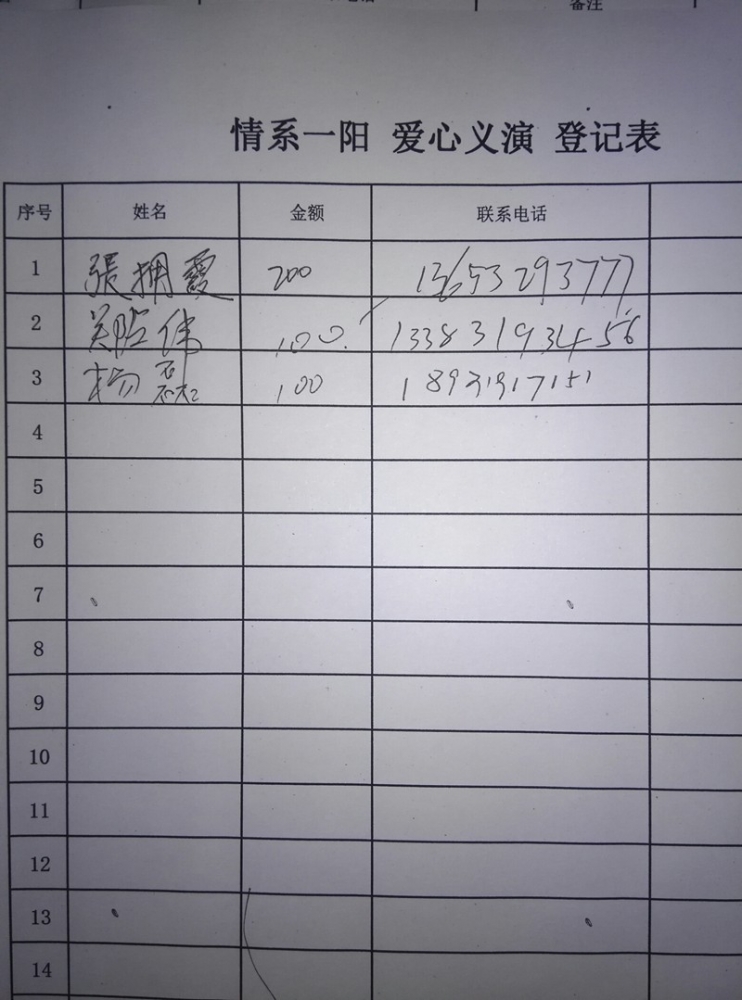 备注
情系一阳 爱心义演 登记表
序号 姓名 金额 联系电话
1 張拥霞 200 13653293777
2 100. 13383193456
3 杨磊 100 18931917151
4
5
6
7
8
9
10
11
12
13
14